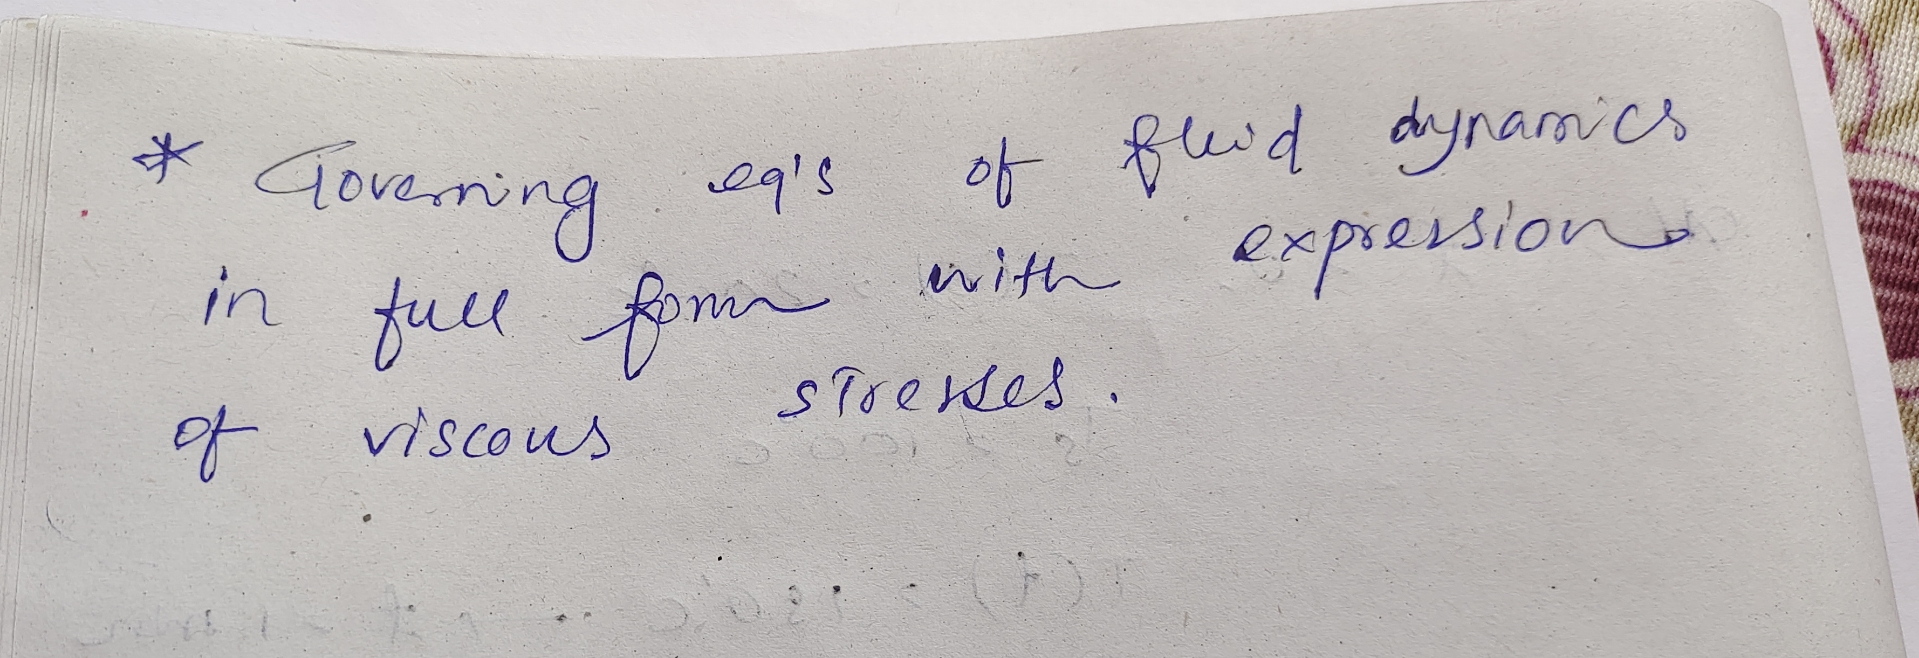 * Governing eq's of fluid dynamics
in full form with expression
of viscous stresses.